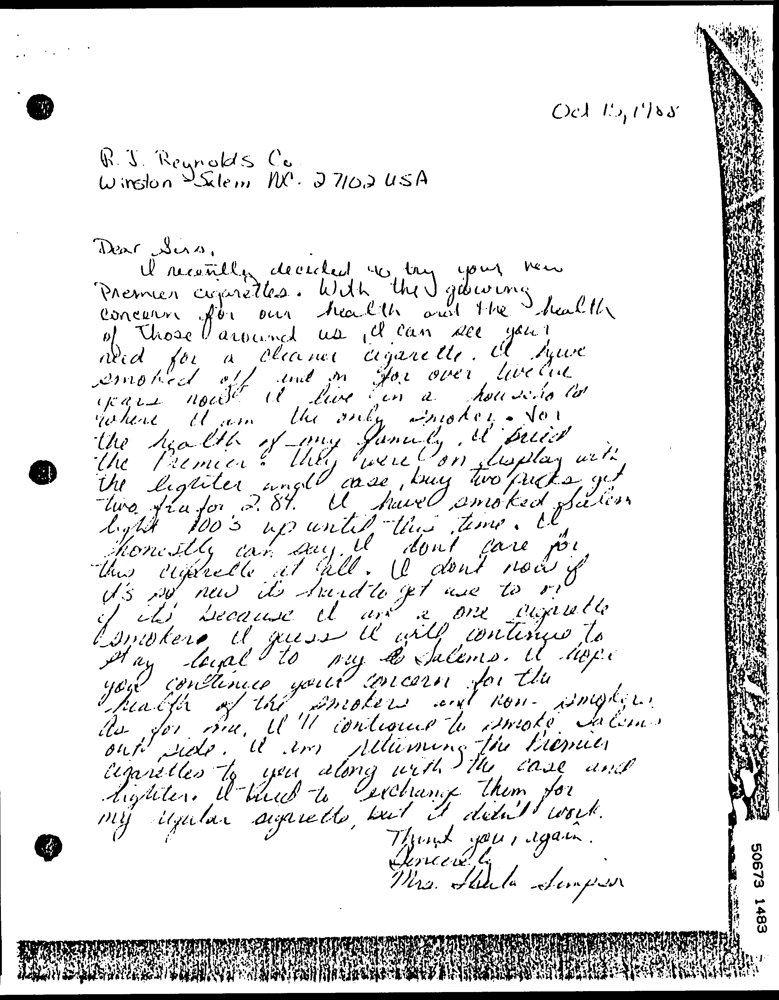 Oct 15, 1988
R. J. Reynolds Co
Winston-Salem NC. 27102 USA
Dear Sirs,
I recently decided to try your new
Premier cigarettes. With the growing
concern for our health and the health
of those around us, I can see your
need for a cleaner cigarette. I have
smoked off and on for over twelve
years now. I live in a
where I am the only smoker. For
the health of my family, I tried
the Premier. They were on display with
the lighter and case, buy two packs get
two for 2.84. I have smoked Salem
light 100's up until this time. I
honestly can say I dont care for
this cigarette at all. I dont now if
it's so new its hard to get use to or
if its because I am a one cigarette
smoker. I guess I will continue to
stay loyal to my Salems. I hope
you continue your concern for the
health of the smokers and non-smokers.
As for me, I'll continue to smoke Salems
out side. I am returning the Premier
cigarettes to you along with the case and
lighter. I tried to exchange them for
my regular cigarette, but it didn't work.
Thank you, again.
Sincerely
Mrs. Simpson
50673 1483